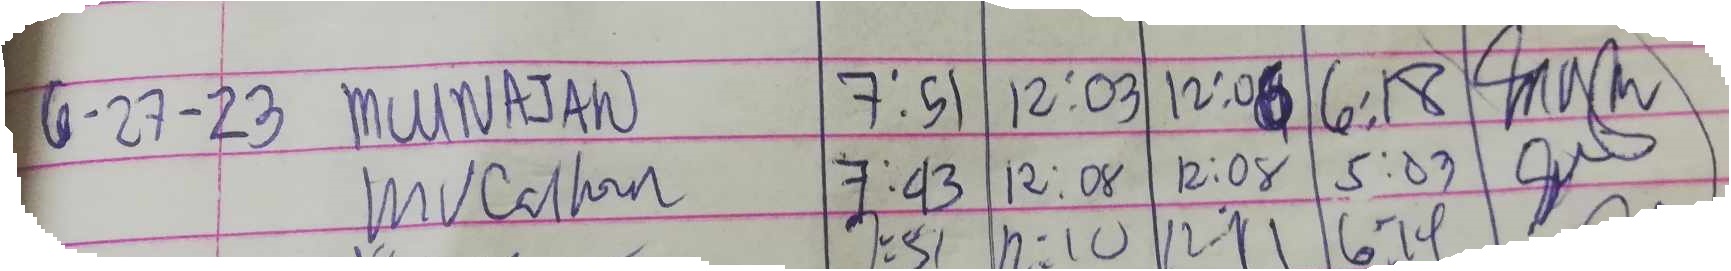 6-27-23 MUUNAJAN 7:51 12:03 12:06 6:18
7:43 12:08 12:08 5:03
7:51 12:10 12:11 6:14